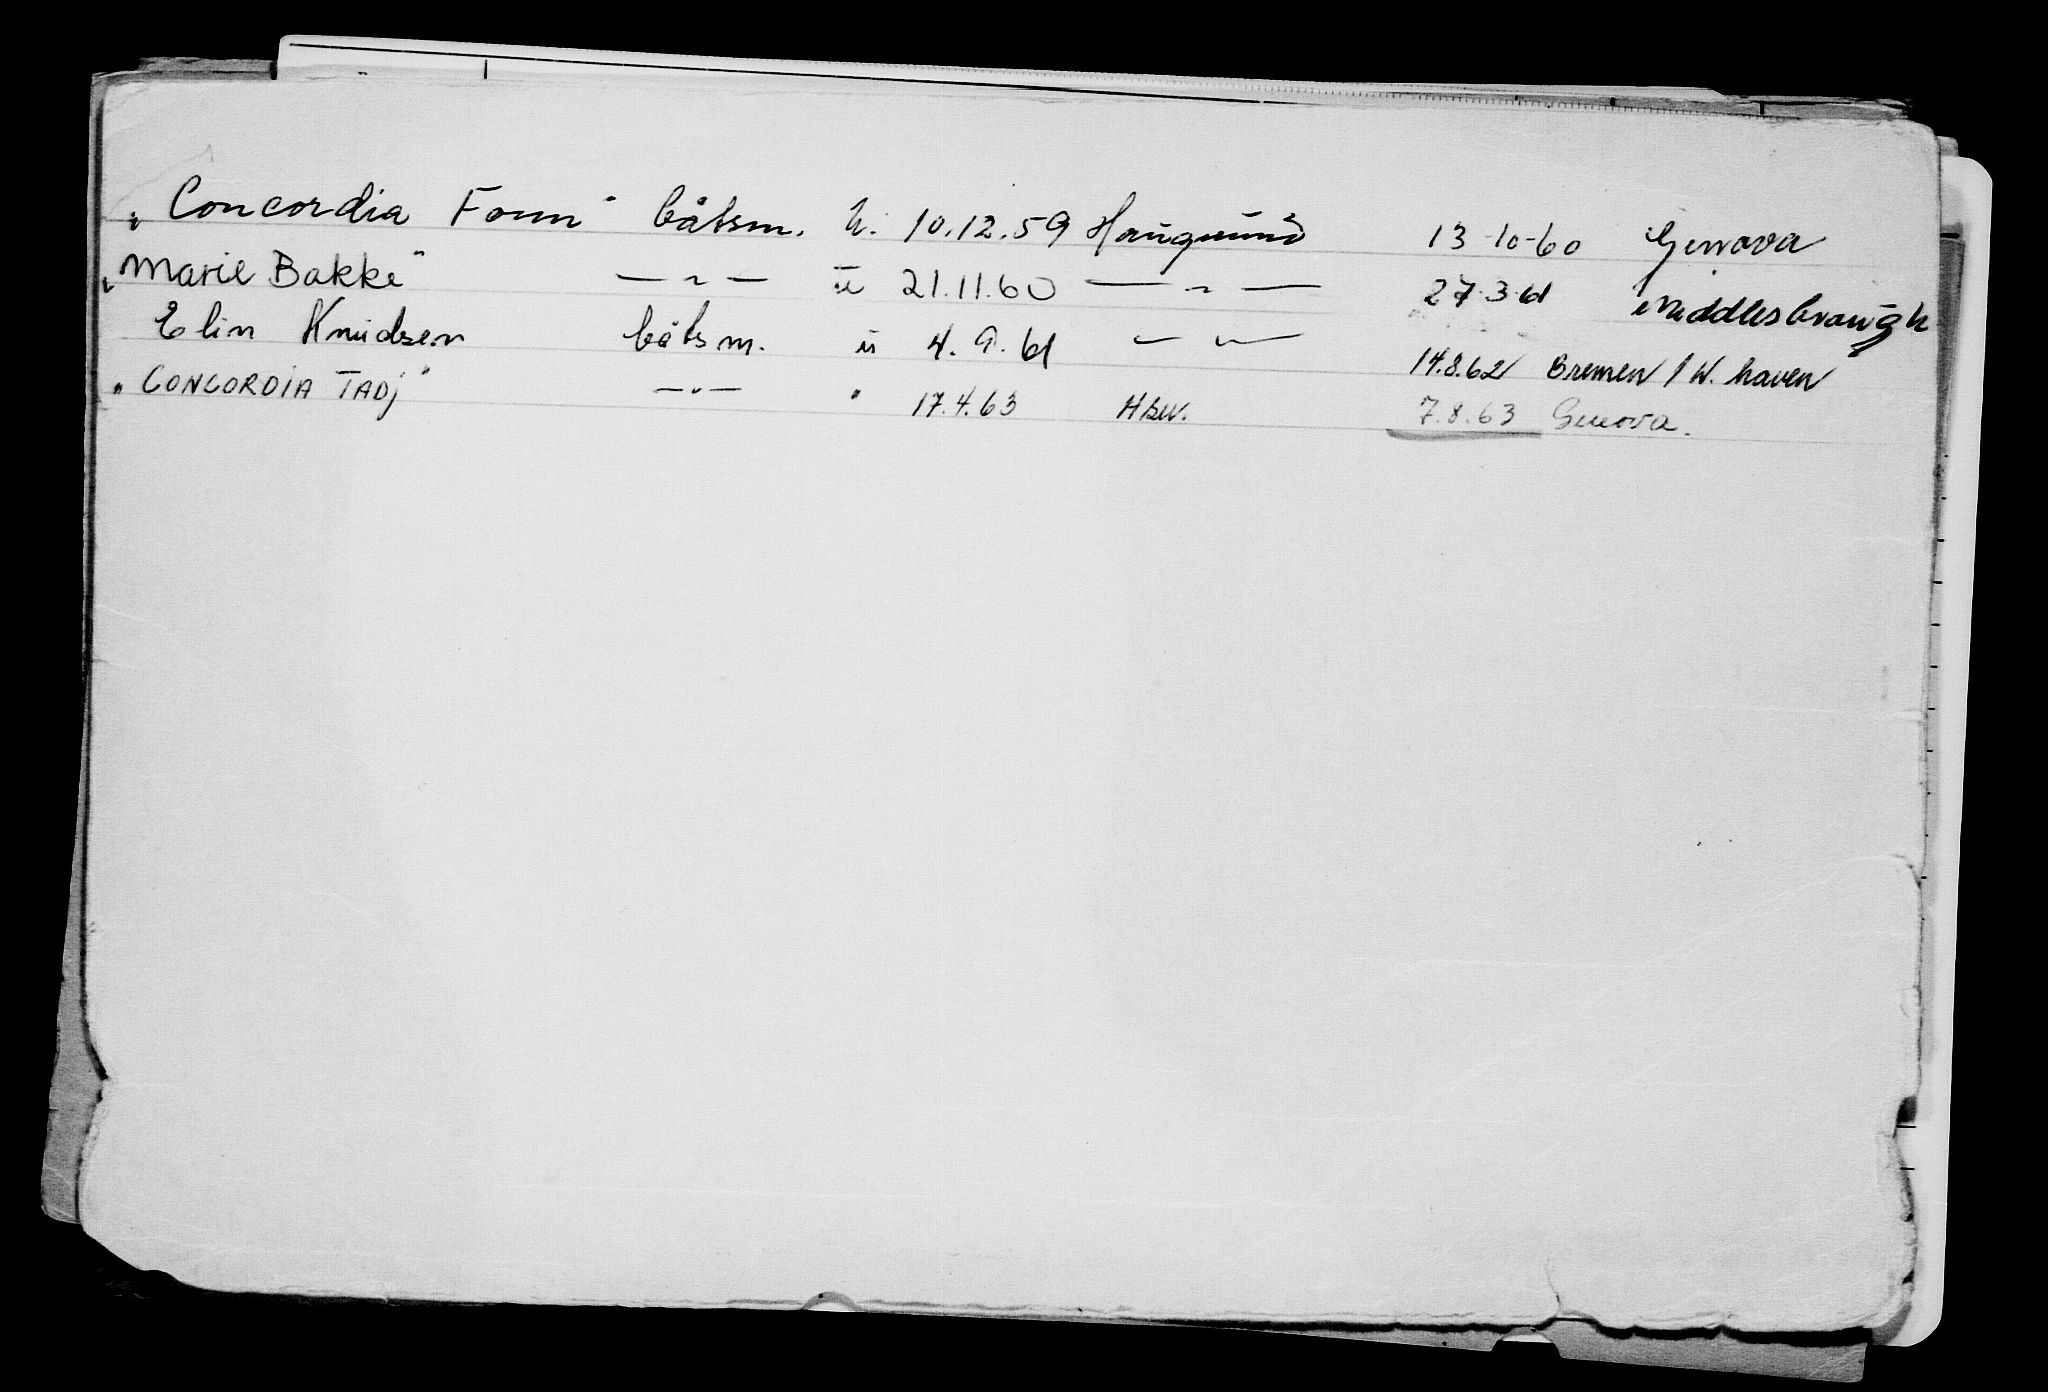 "Concordia Fonn" båtsm. u. 10.12.59 Haugesund 13-10-60 Genova
"Marie Bakke" — " — u 21.11.60 — " — 27.3.61 Middlesbrough
Elin Knudsen båtsm. u 4.9.61 — " — 14.8.62 Bremen / W. haven
"CONCORDIA TADJ" — " — " 17.4.63 7.8.63 Genova.